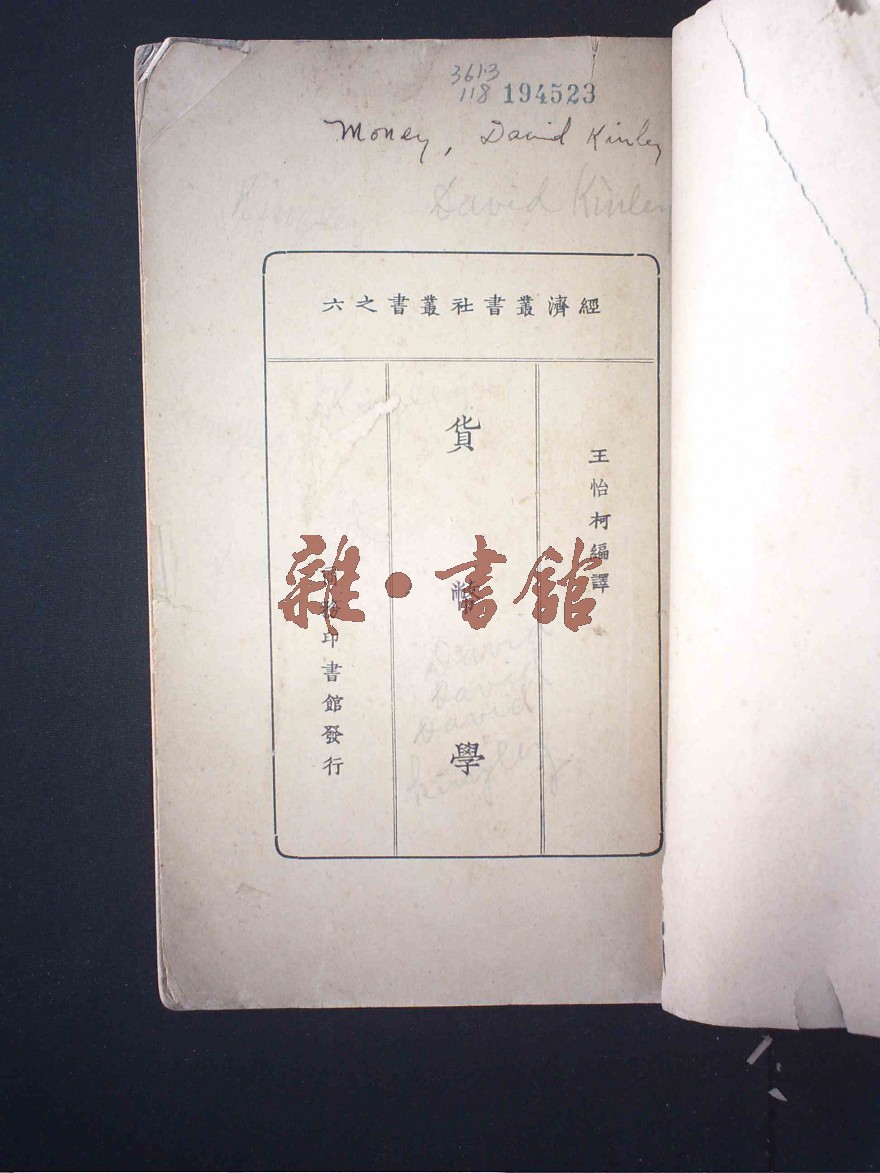 3613
118 194523
Money, David Kinley
David Kinley
經濟叢書社叢書之六
王怡柯編譯
貨幣學
商務印書館發行
雜·書館
David
David
David
kingley